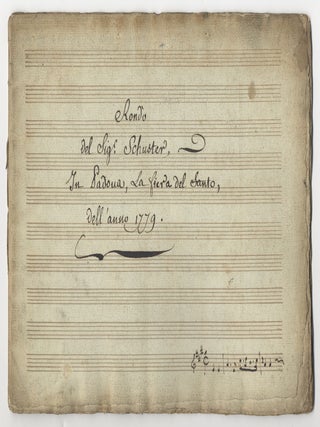 Rondo
del Sig.r Schuster.
In Padova, La fiera del Santo,
dell'anno 1779.